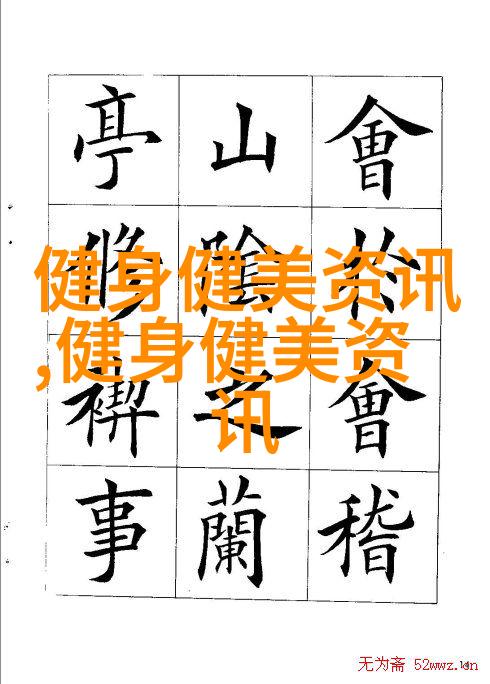 會於會稽
山陰之蘭
亭修禊事
健身健美资讯
,健身健美资
讯
无为斋 52wwz.cn